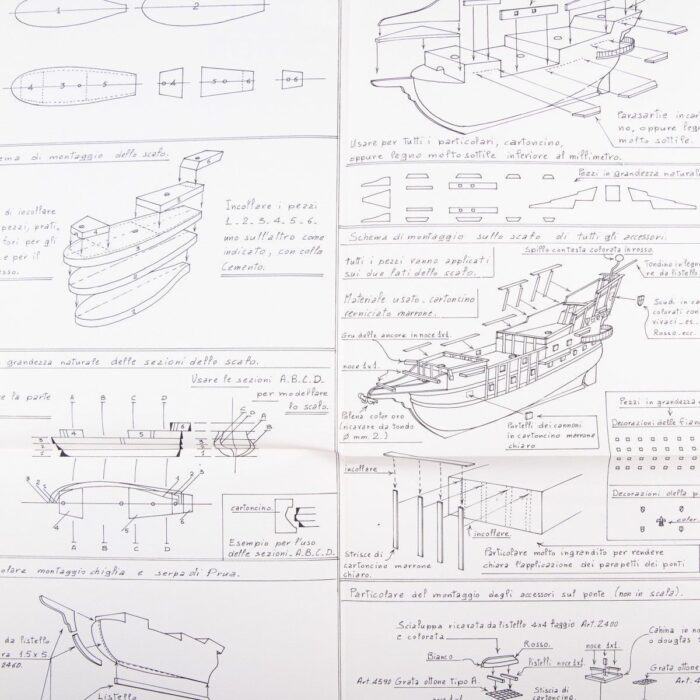 1
2
4
3
5
4
5
6
6
ema di montaggio dello scafo.
di incollare
pezzi, prati,
fori per gli
e per il
esso.
Incollare i pezzi
1_2_3_4_5_6_
uno sull'altro come
indicato, con colla
Cemento.
grandezza naturale delle sezioni dello scafo.
Usare le sezioni A.B.C.D_
per modellare
lo scafo.
e la parte
A
B
C
D
C
B
A
D
5
6
3
2
1
3
2
1
4
5
6
A
B
C
D
cartoncino.
Esempio per l'uso
delle sezioni_A.B.C.D_
colare montaggio chiglia e serpa di Prua.
da listello
1.5x5
2460.
Listello
Parasartie in car
no, oppure legn
molto sottile.
Usare per tutti i particolari, cartoncino,
oppure legno molto sottile inferiore al millimetro.
Pezzi in grandezza natural
Schema di montaggio sullo scafo di tutti gli accessori.
Spillo con testa colorata in rosso.
tutti i pezzi vanno applicati
sui due lati dello scafo.
Tondino in legn
re da listello
Materiale usato_cartoncino
verniciato marrone.
Scudi in ca
colorati con
vivaci_es_
Rosso.ecc.
Gru delle ancore in noce 1x1.
noce 1x1.
Polena color oro
(ricavare da tondo
Ø mm. 2.)
Portelli dei cannoni
in cartoncino marrone
chiaro
Pezzi in grandezza
Decorazioni delle fian
incollare
incollare.
Decorazioni della
color
Strisce di
cartoncino marrone
chiaro.
Particolare molto ingrandito per rendere
chiara l'applicazione dei parapetti dei ponti
Particolare del montaggio degli accessori sul ponte (non in scala).
Scialuppa ricavata da listello 4x4 taggio Art. 2400
e colorata
Rosso.
Bianco
listelli noce 1x1.
noce 1x1.
Cabina in no
o douglas
Art. 4590 Grata ottone tipo A.
Grata ottone
Art. 4
Striscia di
cartoncino